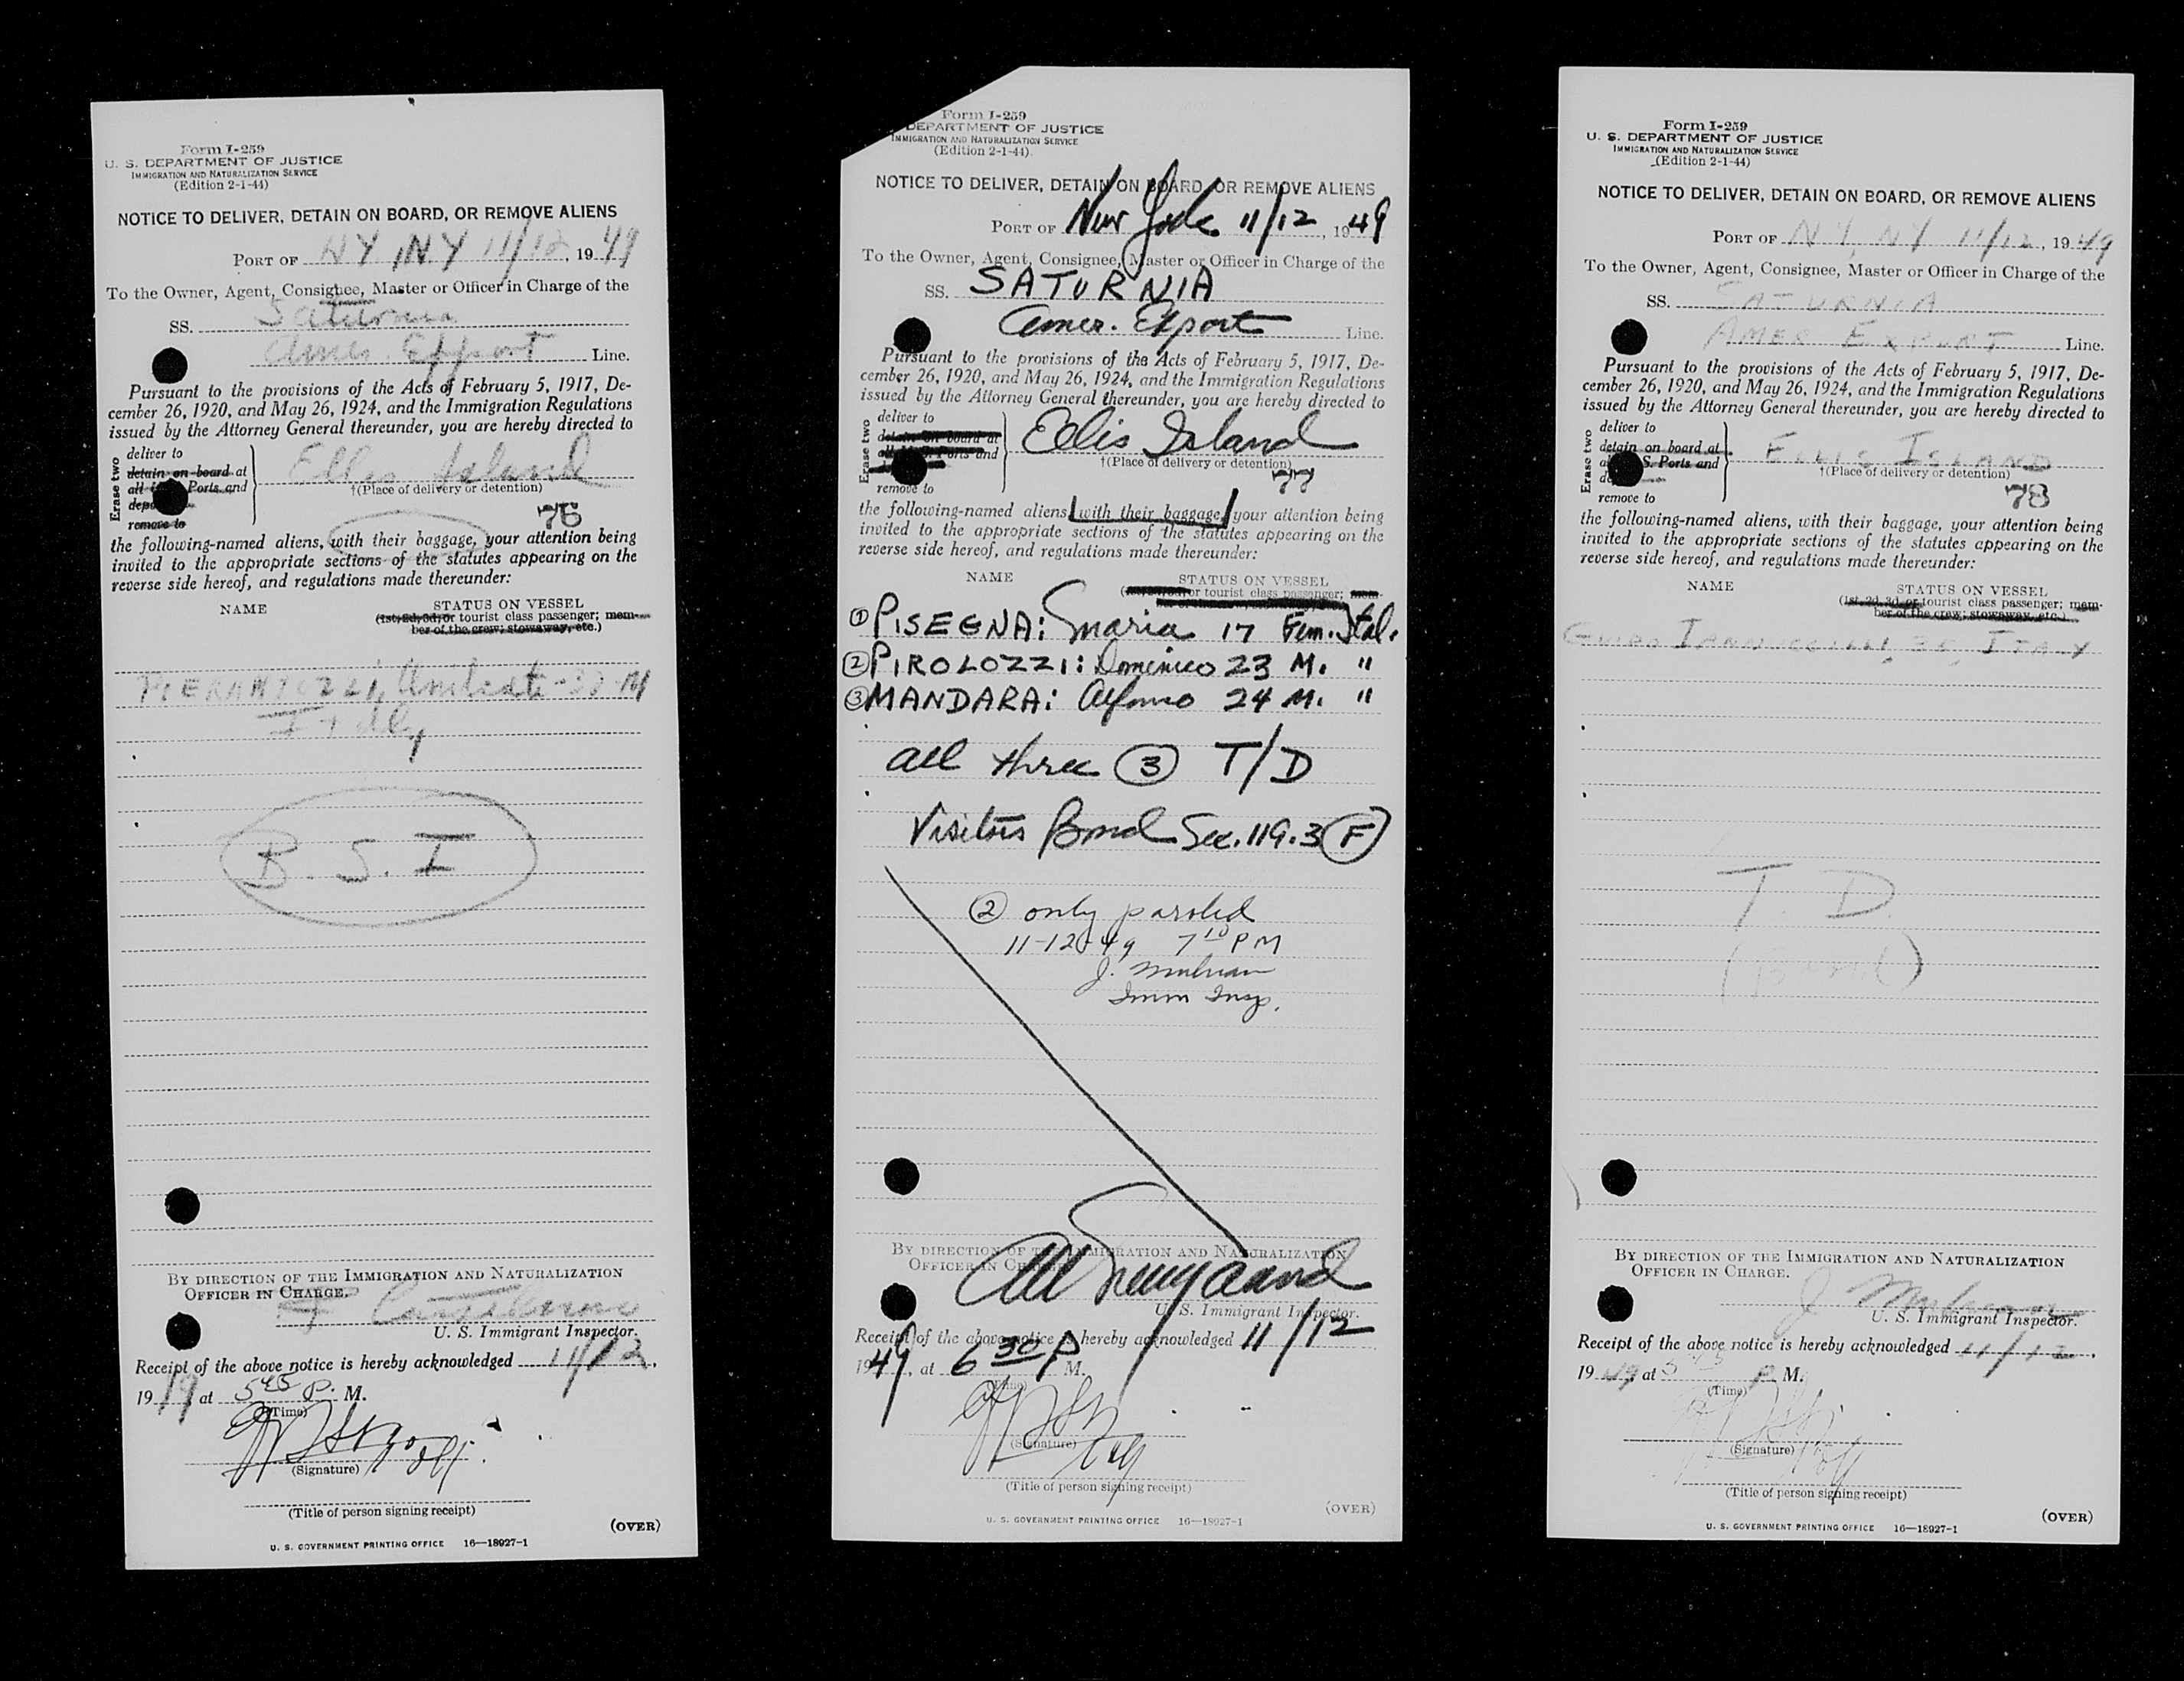 Form I-259
U. S. DEPARTMENT OF JUSTICE
IMMIGRATION AND NATURALIZATION SERVICE
(Edition 2-1-44)
NOTICE TO DELIVER, DETAIN ON BOARD, OR REMOVE ALIENS
PORT OF NY, NY 11/12, 1949
To the Owner, Agent, Consignee, Master or Officer in Charge of the
SS. Saturnia
Amer. Export Line.
Pursuant to the provisions of the Acts of February 5, 1917, De-
cember 26, 1920, and May 26, 1924, and the Immigration Regulations
issued by the Attorney General thereunder, you are hereby directed to
Erase two
deliver to
detain on board at
all Ports and
remove to
Ellis Island
†(Place of delivery or detention)
76
the following-named aliens, with their baggage, your attention being
invited to the appropriate sections of the statutes appearing on the
reverse side hereof, and regulations made thereunder:
NAME STATUS ON VESSEL
(1st, 2d, 3d, or tourist class passenger; mem-
ber of the crew; stowaway, etc.)
Italy
B. S. I
BY DIRECTION OF THE IMMIGRATION AND NATURALIZATION
OFFICER IN CHARGE.
U. S. Immigrant Inspector.
Receipt of the above notice is hereby acknowledged 11/12,
1949 at 5 45 P. M.
(Time)
(Signature)
(Title of person signing receipt)
(OVER)
U. S. GOVERNMENT PRINTING OFFICE 16—18927-1
Form I-259
DEPARTMENT OF JUSTICE
IMMIGRATION AND NATURALIZATION SERVICE
(Edition 2-1-44)
NOTICE TO DELIVER, DETAIN ON BOARD, OR REMOVE ALIENS
PORT OF New York 11/12, 1949
To the Owner, Agent, Consignee, Master or Officer in Charge of the
SS. SATURNIA
Amer. Export Line.
Pursuant to the provisions of the Acts of February 5, 1917, De-
cember 26, 1920, and May 26, 1924, and the Immigration Regulations
issued by the Attorney General thereunder, you are hereby directed to
Erase two
deliver to
detain on board at
all S. Ports and
remove to
Ellis Island
†(Place of delivery or detention)
77
the following-named aliens, with their baggage, your attention being
invited to the appropriate sections of the statutes appearing on the
reverse side hereof, and regulations made thereunder:
NAME STATUS ON VESSEL
or tourist class passenger; mem-
① PISEGNA: Maria 17 Fem. Ital.
② PIROLOZZI: Domenico 23 M. "
③ MANDARA: Alfonso 24 M. "
all three ③ T/D
Visitors Bond Sec. 119.3 (F)
② only paroled
11-12-49 7 10 PM
J. Mulvan
Imm Insp.
BY DIRECTION OF THE IMMIGRATION AND NATURALIZATION
OFFICER IN CHARGE
U. S. Immigrant Inspector.
Receipt of the above notice is hereby acknowledged 11/12
1949, at 6 30 P M.
(Time)
(Signature)
(Title of person signing receipt)
(OVER)
U. S. GOVERNMENT PRINTING OFFICE 16—18927-1
Form I-259
U. S. DEPARTMENT OF JUSTICE
IMMIGRATION AND NATURALIZATION SERVICE
(Edition 2-1-44)
NOTICE TO DELIVER, DETAIN ON BOARD, OR REMOVE ALIENS
PORT OF NY, NY 11/12, 1949
To the Owner, Agent, Consignee, Master or Officer in Charge of the
SS. SATURNIA
AMER EXPORT Line.
Pursuant to the provisions of the Acts of February 5, 1917, De-
cember 26, 1920, and May 26, 1924, and the Immigration Regulations
issued by the Attorney General thereunder, you are hereby directed to
Erase two
deliver to
detain on board at
S. Ports and
remove to
ELLIS ISLAND
†(Place of delivery or detention)
78
the following-named aliens, with their baggage, your attention being
invited to the appropriate sections of the statutes appearing on the
reverse side hereof, and regulations made thereunder:
NAME STATUS ON VESSEL
(1st, 2d, 3d, or tourist class passenger; mem-
ber of the crew; stowaway, etc.)
GUIDO
T. D.
(Bond)
BY DIRECTION OF THE IMMIGRATION AND NATURALIZATION
OFFICER IN CHARGE.
U. S. Immigrant Inspector.
Receipt of the above notice is hereby acknowledged 11/12,
1949 at 5 P M.
(Time)
(Signature)
(Title of person signing receipt)
(OVER)
U. S. GOVERNMENT PRINTING OFFICE 16—18927-1